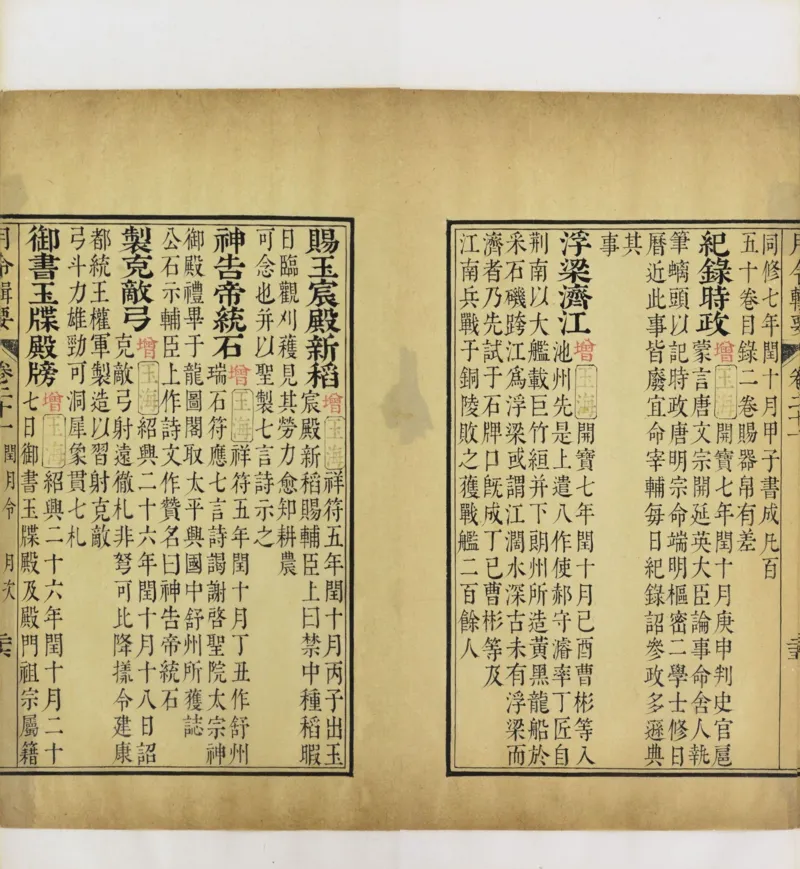 月令輯要 卷二十一
同修七年閏十月甲子書成凡百
五十卷目錄二卷賜器帛有差
紀錄時政 增 玉海 開寶七年閏十月庚申判史官扈
蒙言唐文宗開延英大臣論事命舍人執
筆螭頭以記時政唐明宗命端明樞密二學士修日
曆近此事皆廢宜命宰輔每日紀錄詔參政多遜典
其
事
浮梁濟江 增 玉海 開寶七年閏十月己酉曹彬等入
池州先是上遣八作使郝守濬率丁匠自
荆南以大艦載巨竹絙并下朗州所造黃黑龍船於
采石磯跨江爲浮梁或謂江濶水深古未有浮梁而
濟者乃先試于石牌口旣成丁巳曹彬等及
江南兵戰于銅陵敗之獲戰艦二百餘人
賜玉宸殿新稻 增 玉海 祥符五年閏十月丙子出玉
宸殿新稻賜輔臣上曰禁中種稻暇
日臨觀刈穫見其勞力愈知耕農
可念也并以聖製七言詩示之
神告帝統石 增 玉海 祥符五年閏十月丁丑作舒州
瑞石符應七言詩謁謝啓聖院太宗神
御殿禮畢于龍圖閣取太平興國中舒州所獲誌
公石示輔臣上作詩文作贊名曰神告帝統石
製克敵弓 增 玉海 紹興二十六年閏十月十八日詔
克敵弓射遠徹札非弩可比降㨾令建康
都統王權軍製造以習射克敵
弓斗力雄勁可洞犀象貫七札
御書玉牒殿牓 增 玉海 紹興二十六年閏十月二十
七日御書玉牒殿及殿門祖宗屬籍
月令輯要 卷二十一 閏月令 月次